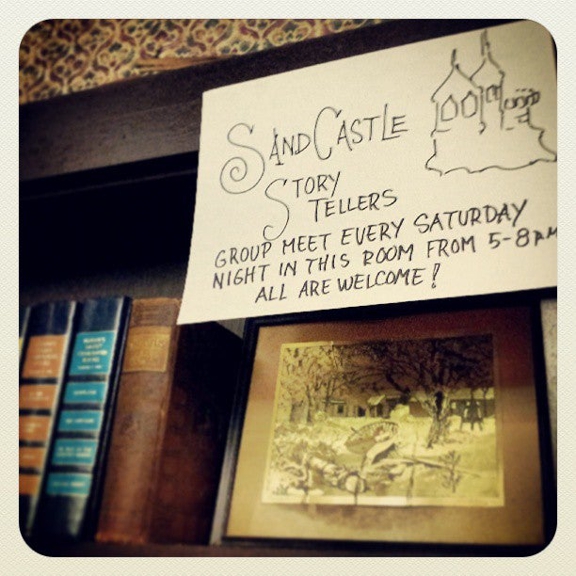 SAND CASTLE
STORY
TELLERS
GROUP MEET EVERY SATURDAY
NIGHT IN THIS ROOM FROM 5-8PM
ALL ARE WELCOME!